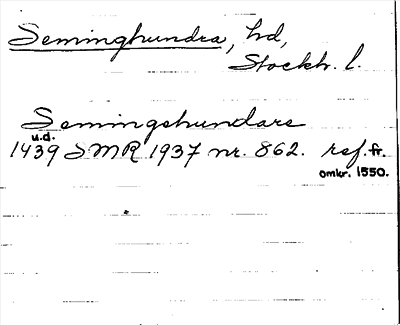 Seminghundra, hd,
Stockh. l.
Semingshundare
u.d.
1439 SMR 1937 nr. 862. ref. fr.
omkr. 1550.